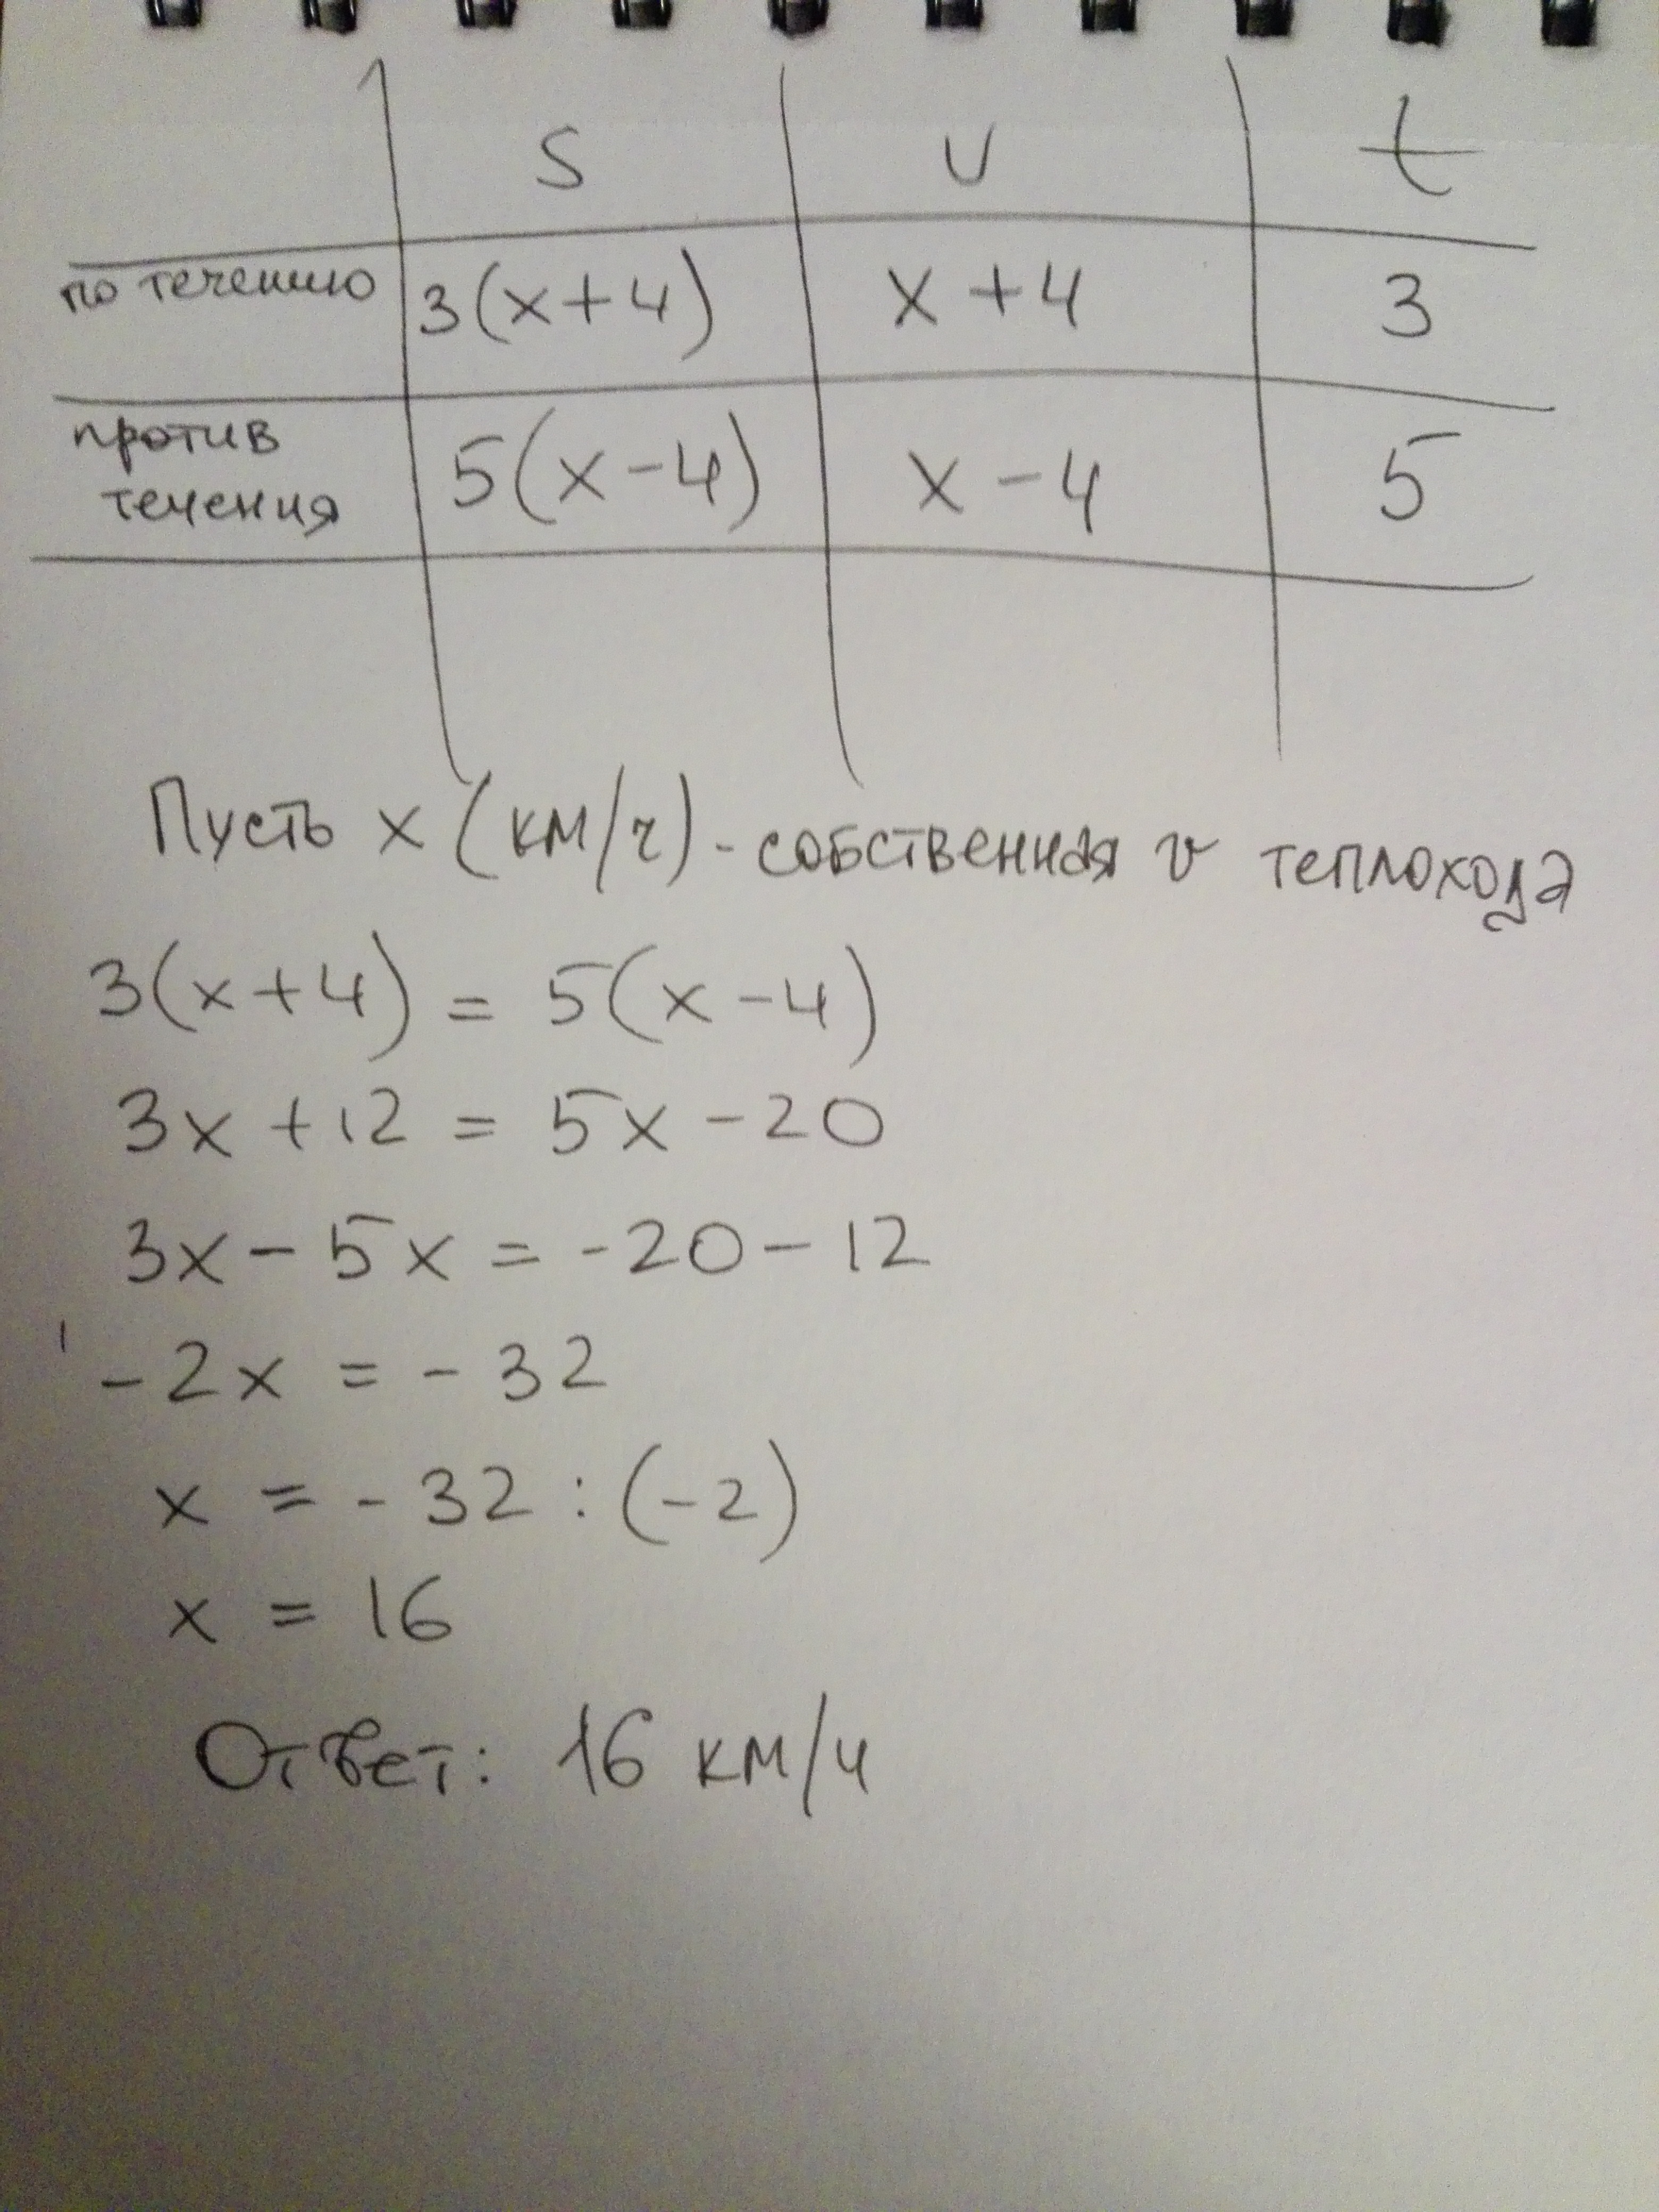 S υ t
по течению 3(x+4) x+4 3
против
течения 5(x-4) x-4 5
Пусть x (км/ч) - собственная v теплохода
3(x+4) = 5(x-4)
3x+12 = 5x-20
3x-5x = -20-12
-2x = -32
x = -32 : (-2)
x = 16
Ответ: 16 км/ч